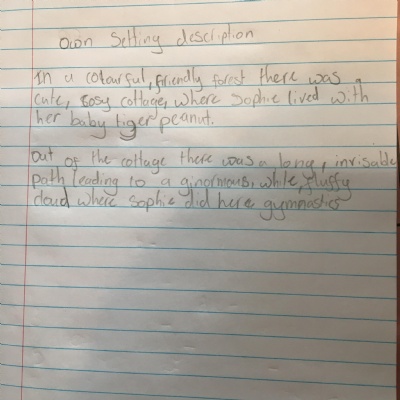 Own Setting description
In a colourful, friendly forest there was
cute, cosy cottage, where Sophie lived with
her baby tiger peanut.
Out of the cottage there was a long, invisable
path leading to a ginormous, white, fluffy
cloud where Sophie did here gymnastics